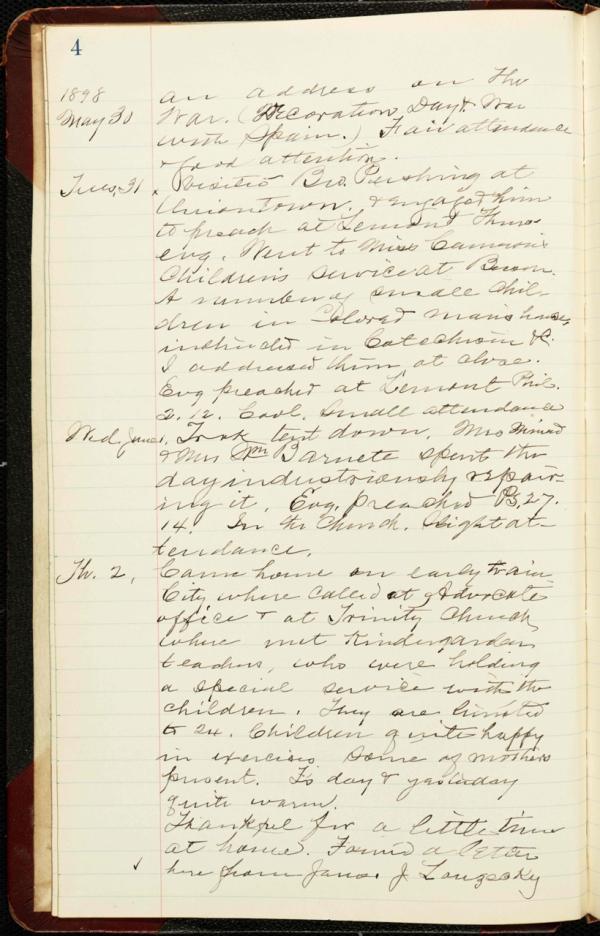 4
1898 an address on the
May 30 War. (Decoration Day & War
with Spain.) Fair attendance
& good attention.
Tues, 31, Visited Bro. Pershing at
Uniontown, & engaged him
to preach at Lemont Thurs
evg. Went to Miss Cameron's
Children's service at
A number of small chil-
dren in Colored man's house,
instructed in Catechism &c.
I addressed them at close.
Evg preached at Lemont Phil.
2.12. Cool. Small attendance
Wed. June 1, Took tent down. Mrs
& Mrs Wm Barnete spent the
day industriously repair-
ing it. Evg. preached Ps, 27.
14. In the Church. Slight at-
tendance.
Th. 2, Came home on early train
City where called at Advocate
office & at Trinity Church
where met Kindergarden
teachers, who were holding
a special service with the
children. They are limited
to 24. Children quite happy
in exercises some of mothers
present. To day & yesterday
quite warm.
Thankful for a little time
at home. Found a letter
here from J.